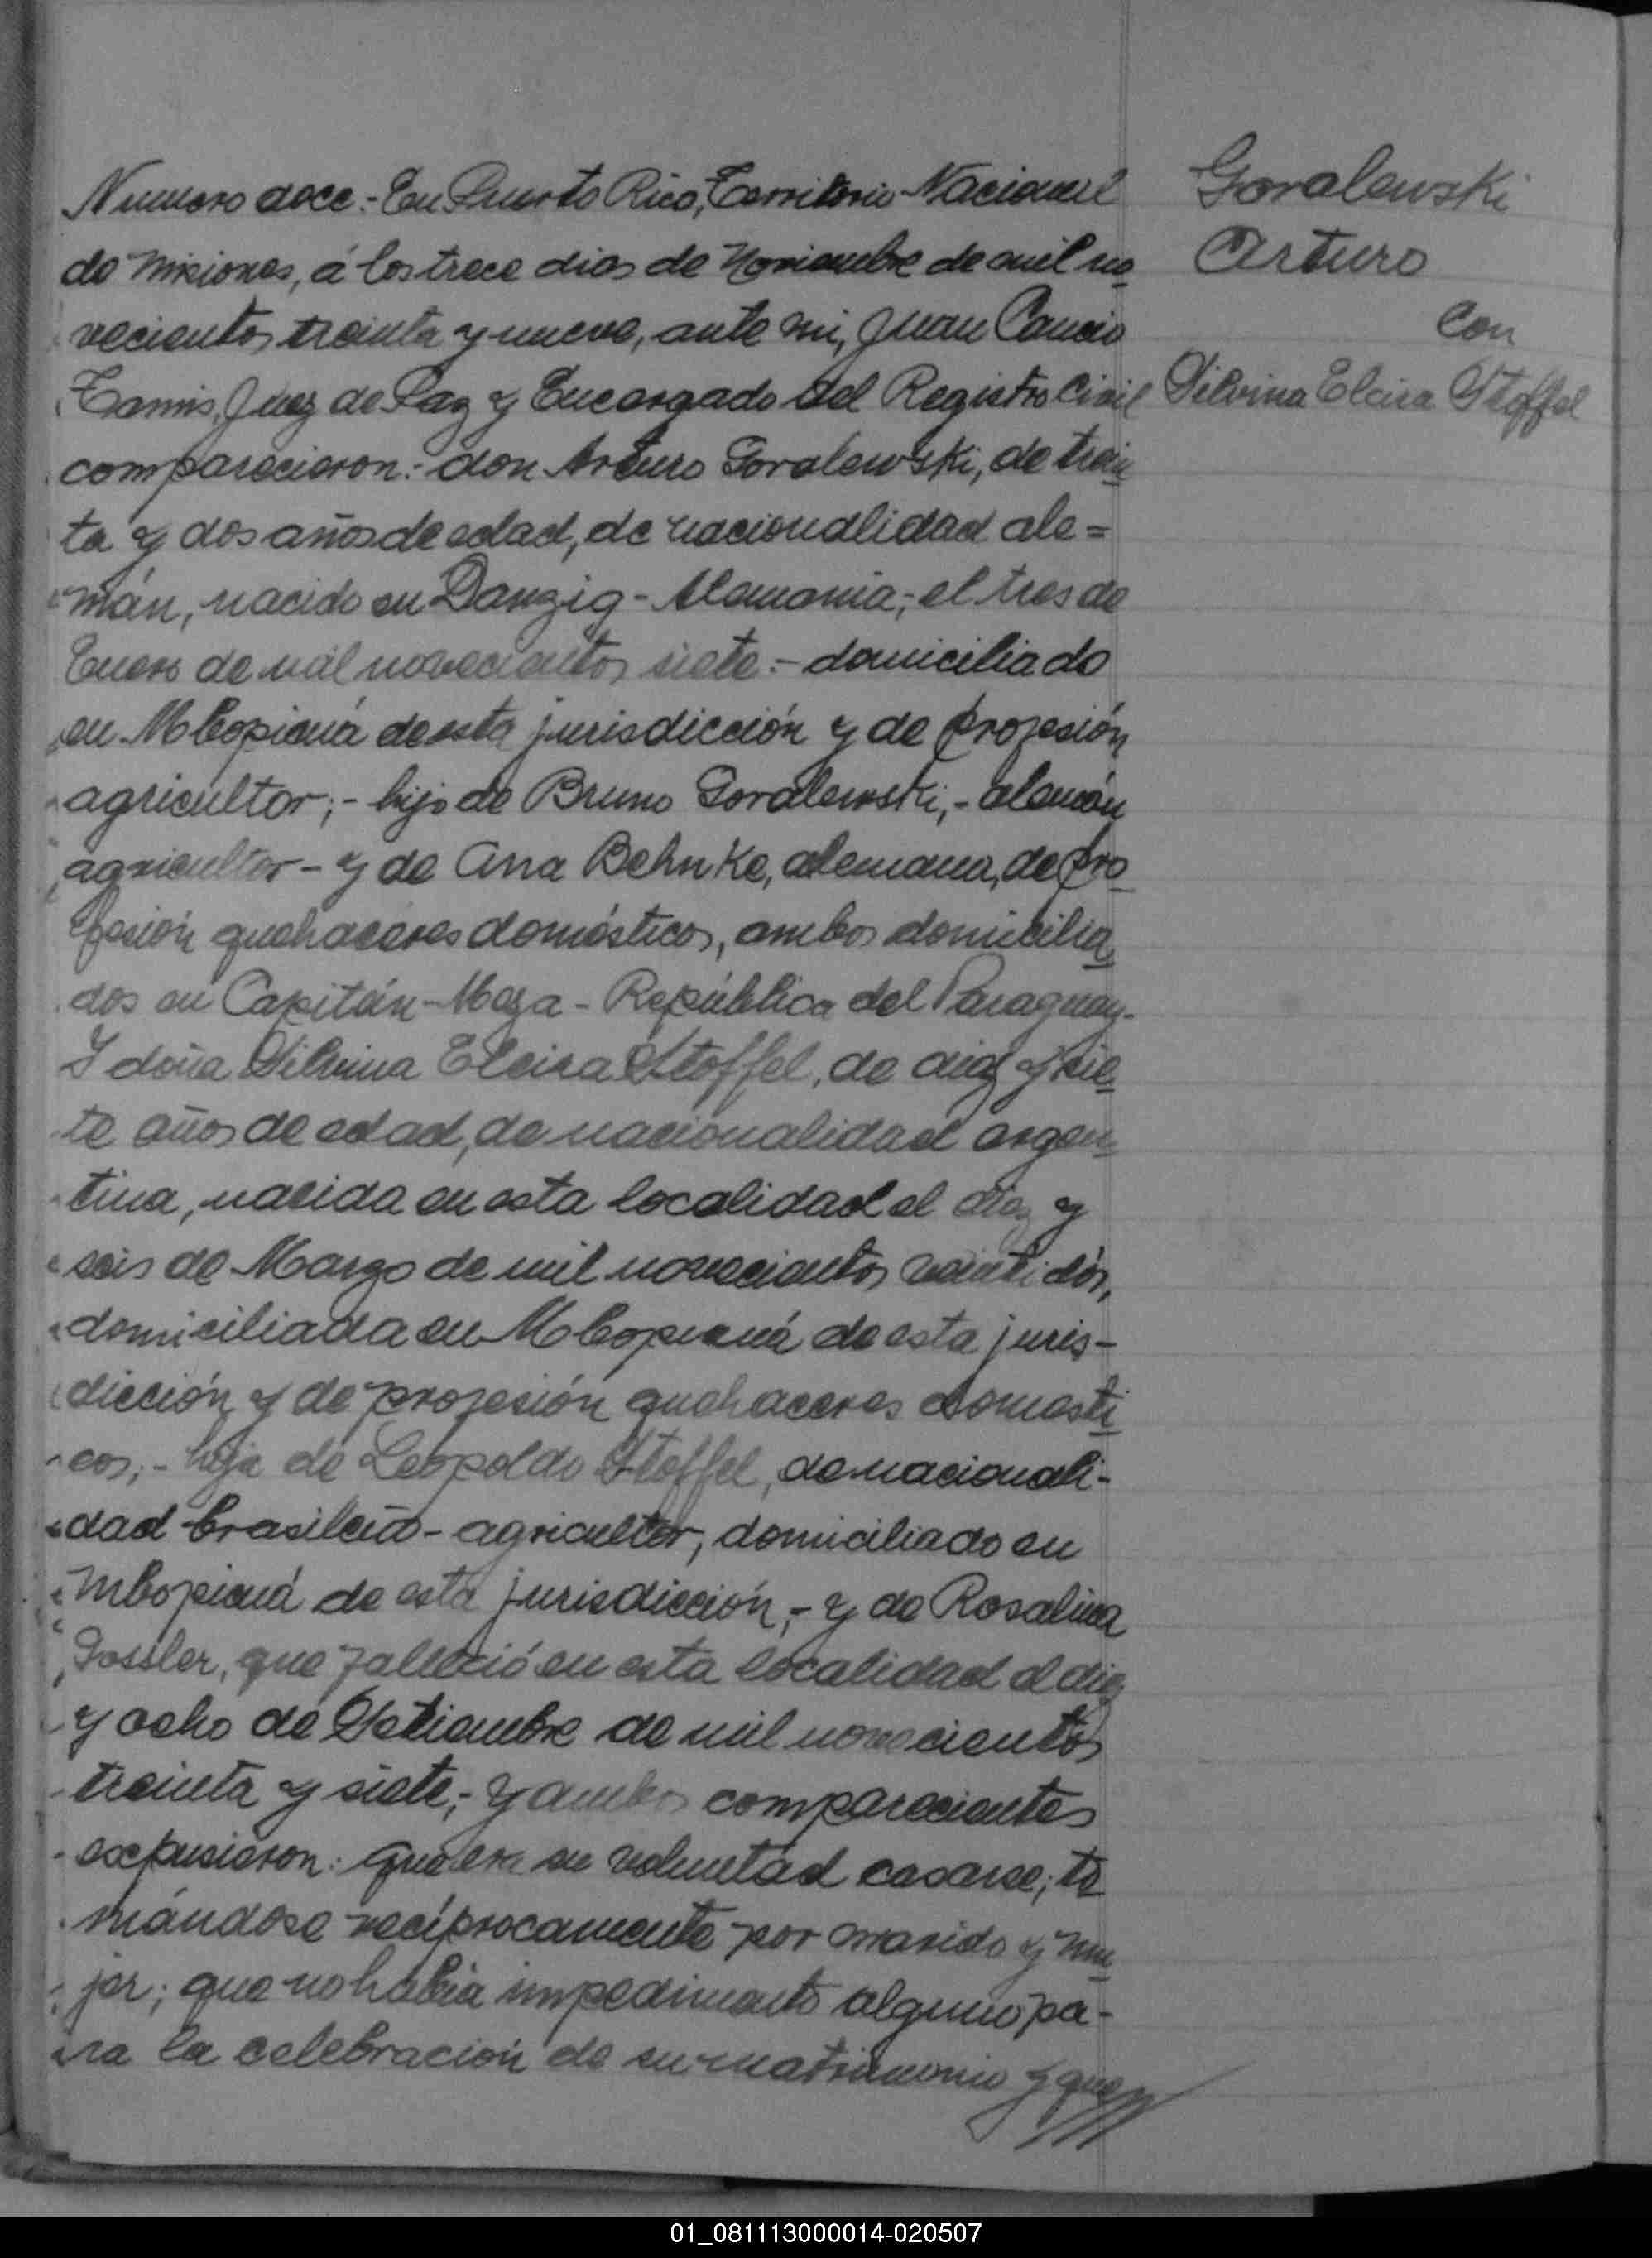 Numero doce.- En Puerto Rico, Territorio Nacional
de Misiones, á los trece dias de Noviembre de mil no
vecientos treinta y nueve, ante mi, Juan Cancio
Juez de Paz y Encargado del Registro Civil
comparecieron: don Arturo Goralewski, de trein
ta y dos años de edad, de nacionalidad ale=
mán, nacido en Danzig - Alemania; el tres de
Enero de mil novecientos siete.- domiciliado
en Mbopicuá de esta jurisdicción y de profesión
agricultor;- hijo de Bruno Goralewski,- alemán
agricultor - y de Ana Behnke, alemana, de pro
fesión quehaceres domésticos, ambos domicilia
dos en Capitán - Meza - República del Paraguay.
Y doña Silvina Elcira Stoffel, de diez y sie
te años de edad, de nacionalidad argen
tina, nacida en esta localidad el diez y
seis de Marzo de mil novecientos veintidós,
domiciliada en Mbopicuá de esta juris-
dicción y de profesión quehaceres domesti
cos;- hija de Leopoldo Stoffel, de nacionali-
dad brasileño - agricultor, domiciliado en
Mbopicuá de esta jurisdicción,- y de Rosalina
Gossler, que falleció en esta localidad el diez
y ocho de Setiembre de mil novecientos
treinta y siete;- Y ambos comparecientes
expusieron: que era su voluntad casarse; to
mándose recíprocamente por marido y mu
jer; que no habia impedimento alguno pa-
ra la celebración de su matrimonio y que
Goralewski
Arturo
Con
Silvina Elcira Stoffel
01_081113000014-020507